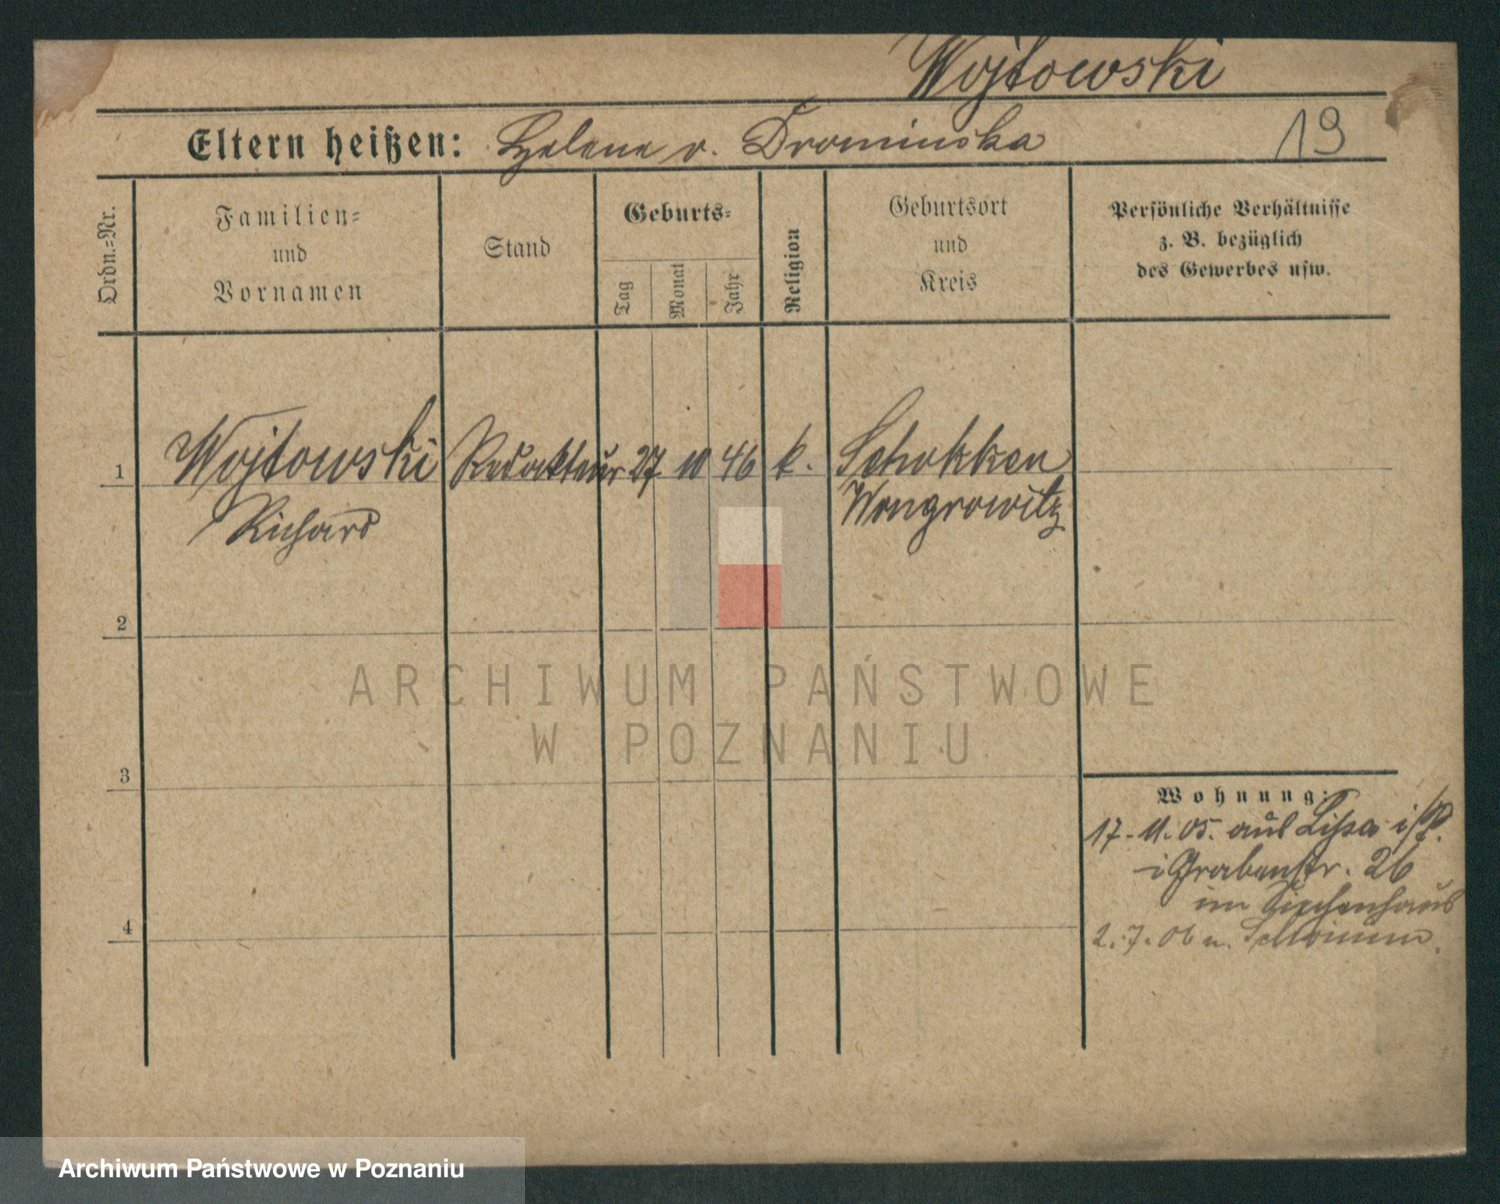 Wojtowski
Eltern heißen: Helene v. Drominska
19
Ordn.-Nr.
Familien-
und
Vornamen
Stand
Geburts-
Tag
Monat
Jahr
Religion
Geburtsort
und
Kreis
Persönliche Verhältnisse
z. B. bezüglich
des Gewerbes usw.
1 Wojtowski Redakteur 27 10 46 k. Schokken
Richard Wongrowitz
2
ARCHIWUM PAŃSTWOWE
W POZNANIU
3
Wohnung:
17. 11. 05. aus Lissa i/P.
Grabenstr. 26
im Siechenhaus
4
2. 7. 06 n.
Archiwum Państwowe w Poznaniu